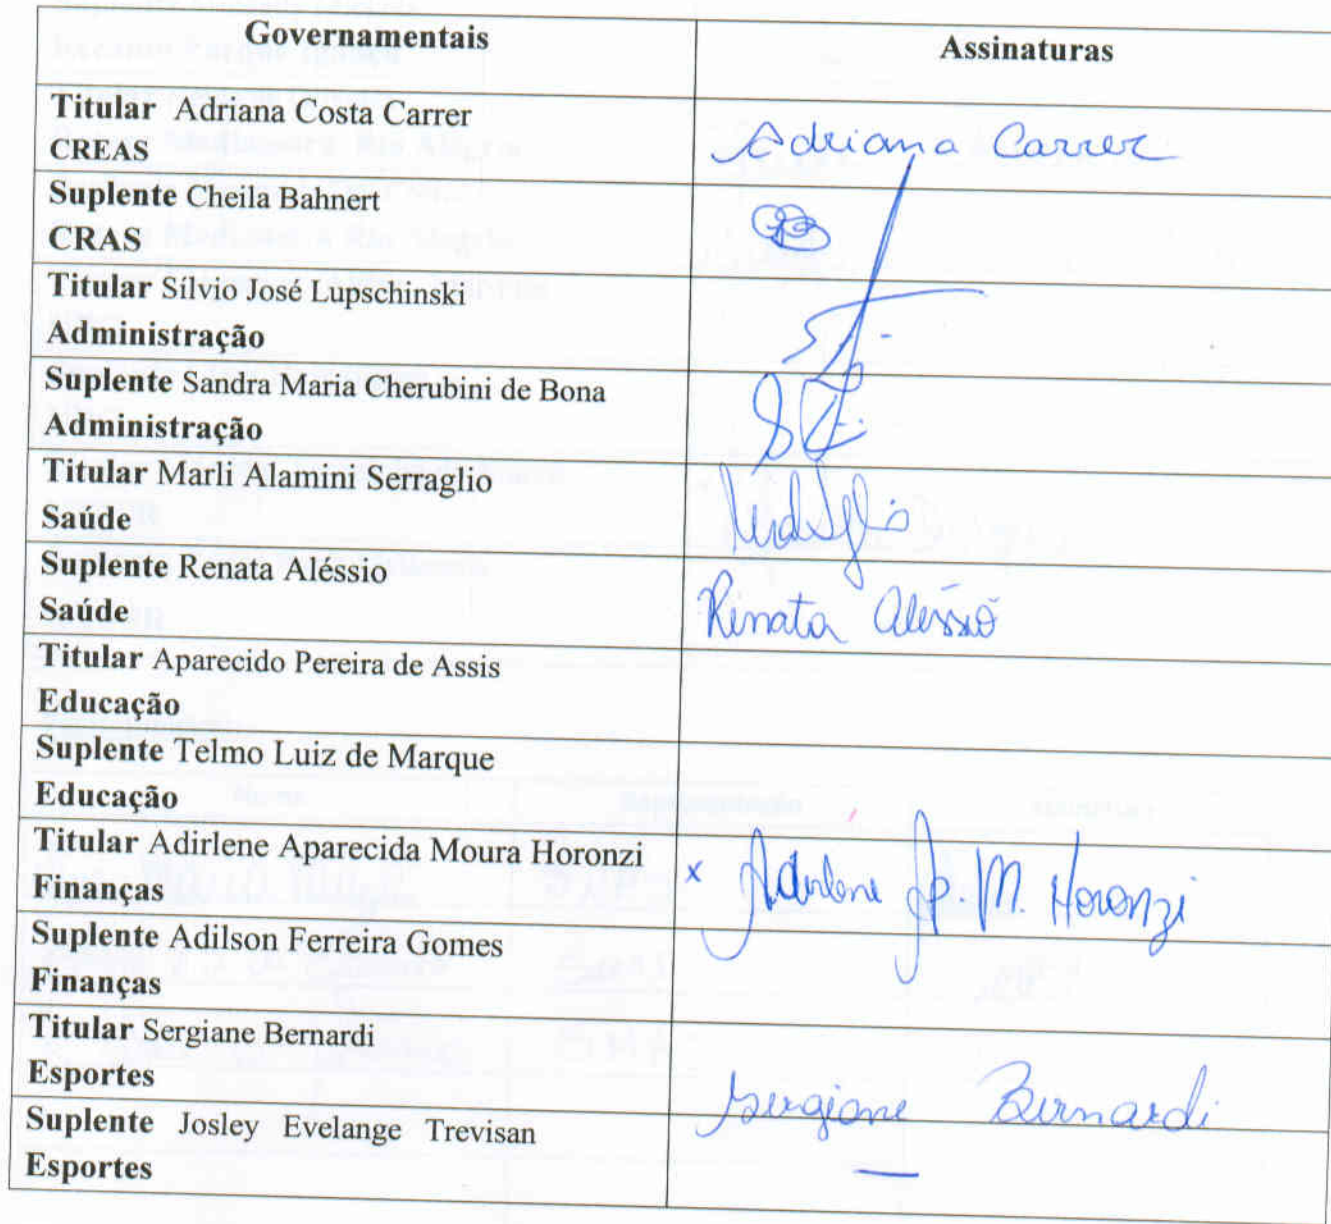 Governamentais Assinaturas
Titular Adriana Costa Carrer
CREAS
Adriana Carrer
Suplente Cheila Bahnert
CRAS
Titular Sílvio José Lupschinski
Administração
Suplente Sandra Maria Cherubini de Bona
Administração
Titular Marli Alamini Serraglio
Saúde
Suplente Renata Aléssio
Saúde
Renata Aléssio
Titular Aparecido Pereira de Assis
Educação
Suplente Telmo Luiz de Marque
Educação
Titular Adirlene Aparecida Moura Horonzi
Finanças
x Adirlene Ap. M. Horonzi
Suplente Adilson Ferreira Gomes
Finanças
Titular Sergiane Bernardi
Esportes
Sergiane Bernardi
Suplente Josley Evelange Trevisan
Esportes